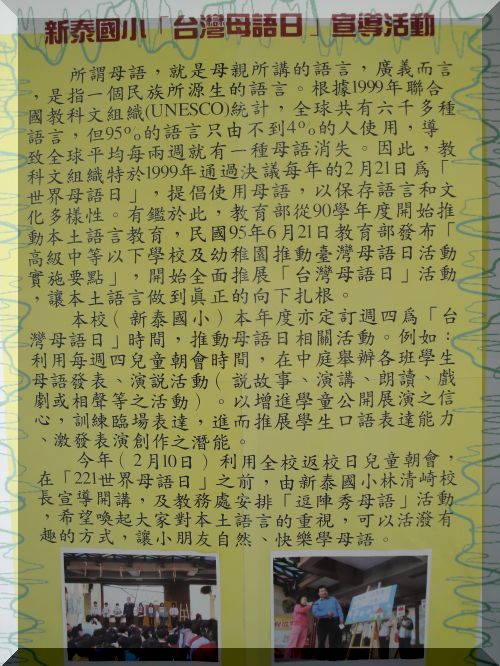 新泰國小「台灣母語日」宣導活動
所謂母語，就是母親所講的語言，廣義而言
，是指一個民族所源生的語言。根據1999年聯合
國教科文組織(UNESCO)統計，全球共有六千多種
語言，但95%的語言只由不到4%的人使用，導
致全球平均每兩週就有一種母語消失。因此，教
科文組織特於1999年通過決議每年的2月21日為「
世界母語日」，提倡使用母語，以保存語言和文
化多樣性。有鑑於此，教育部從90學年度開始推
動本土語言教育，民國95年6月21日教育部發布「
高級中等以下學校及幼稚園推動臺灣母語日活動
實施要點」，開始全面推展「台灣母語日」活動
，讓本土語言做到真正的向下扎根。
本校（新泰國小）本年度亦定訂週四為「台
灣母語日」時間，推動母語日相關活動。例如：
利用每週四兒童朝會時間，在中庭舉辦各班學生
母語發表、演說活動（說故事、演講、朗讀、戲
劇或相聲等之活動）。以增進學童公開展演之信
心，訓練臨場表達，進而推展學生口語表達能力
、激發表演創作之潛能。
今年（2月10日）利用全校返校日兒童朝會，
在「221世界母語日」之前，由新泰國小林清崎校
長宣導開講，及教務處安排「逗陣秀母語」活動
，希望喚起大家對本土語言的重視，可以活潑有
趣的方式，讓小朋友自然、快樂學母語。